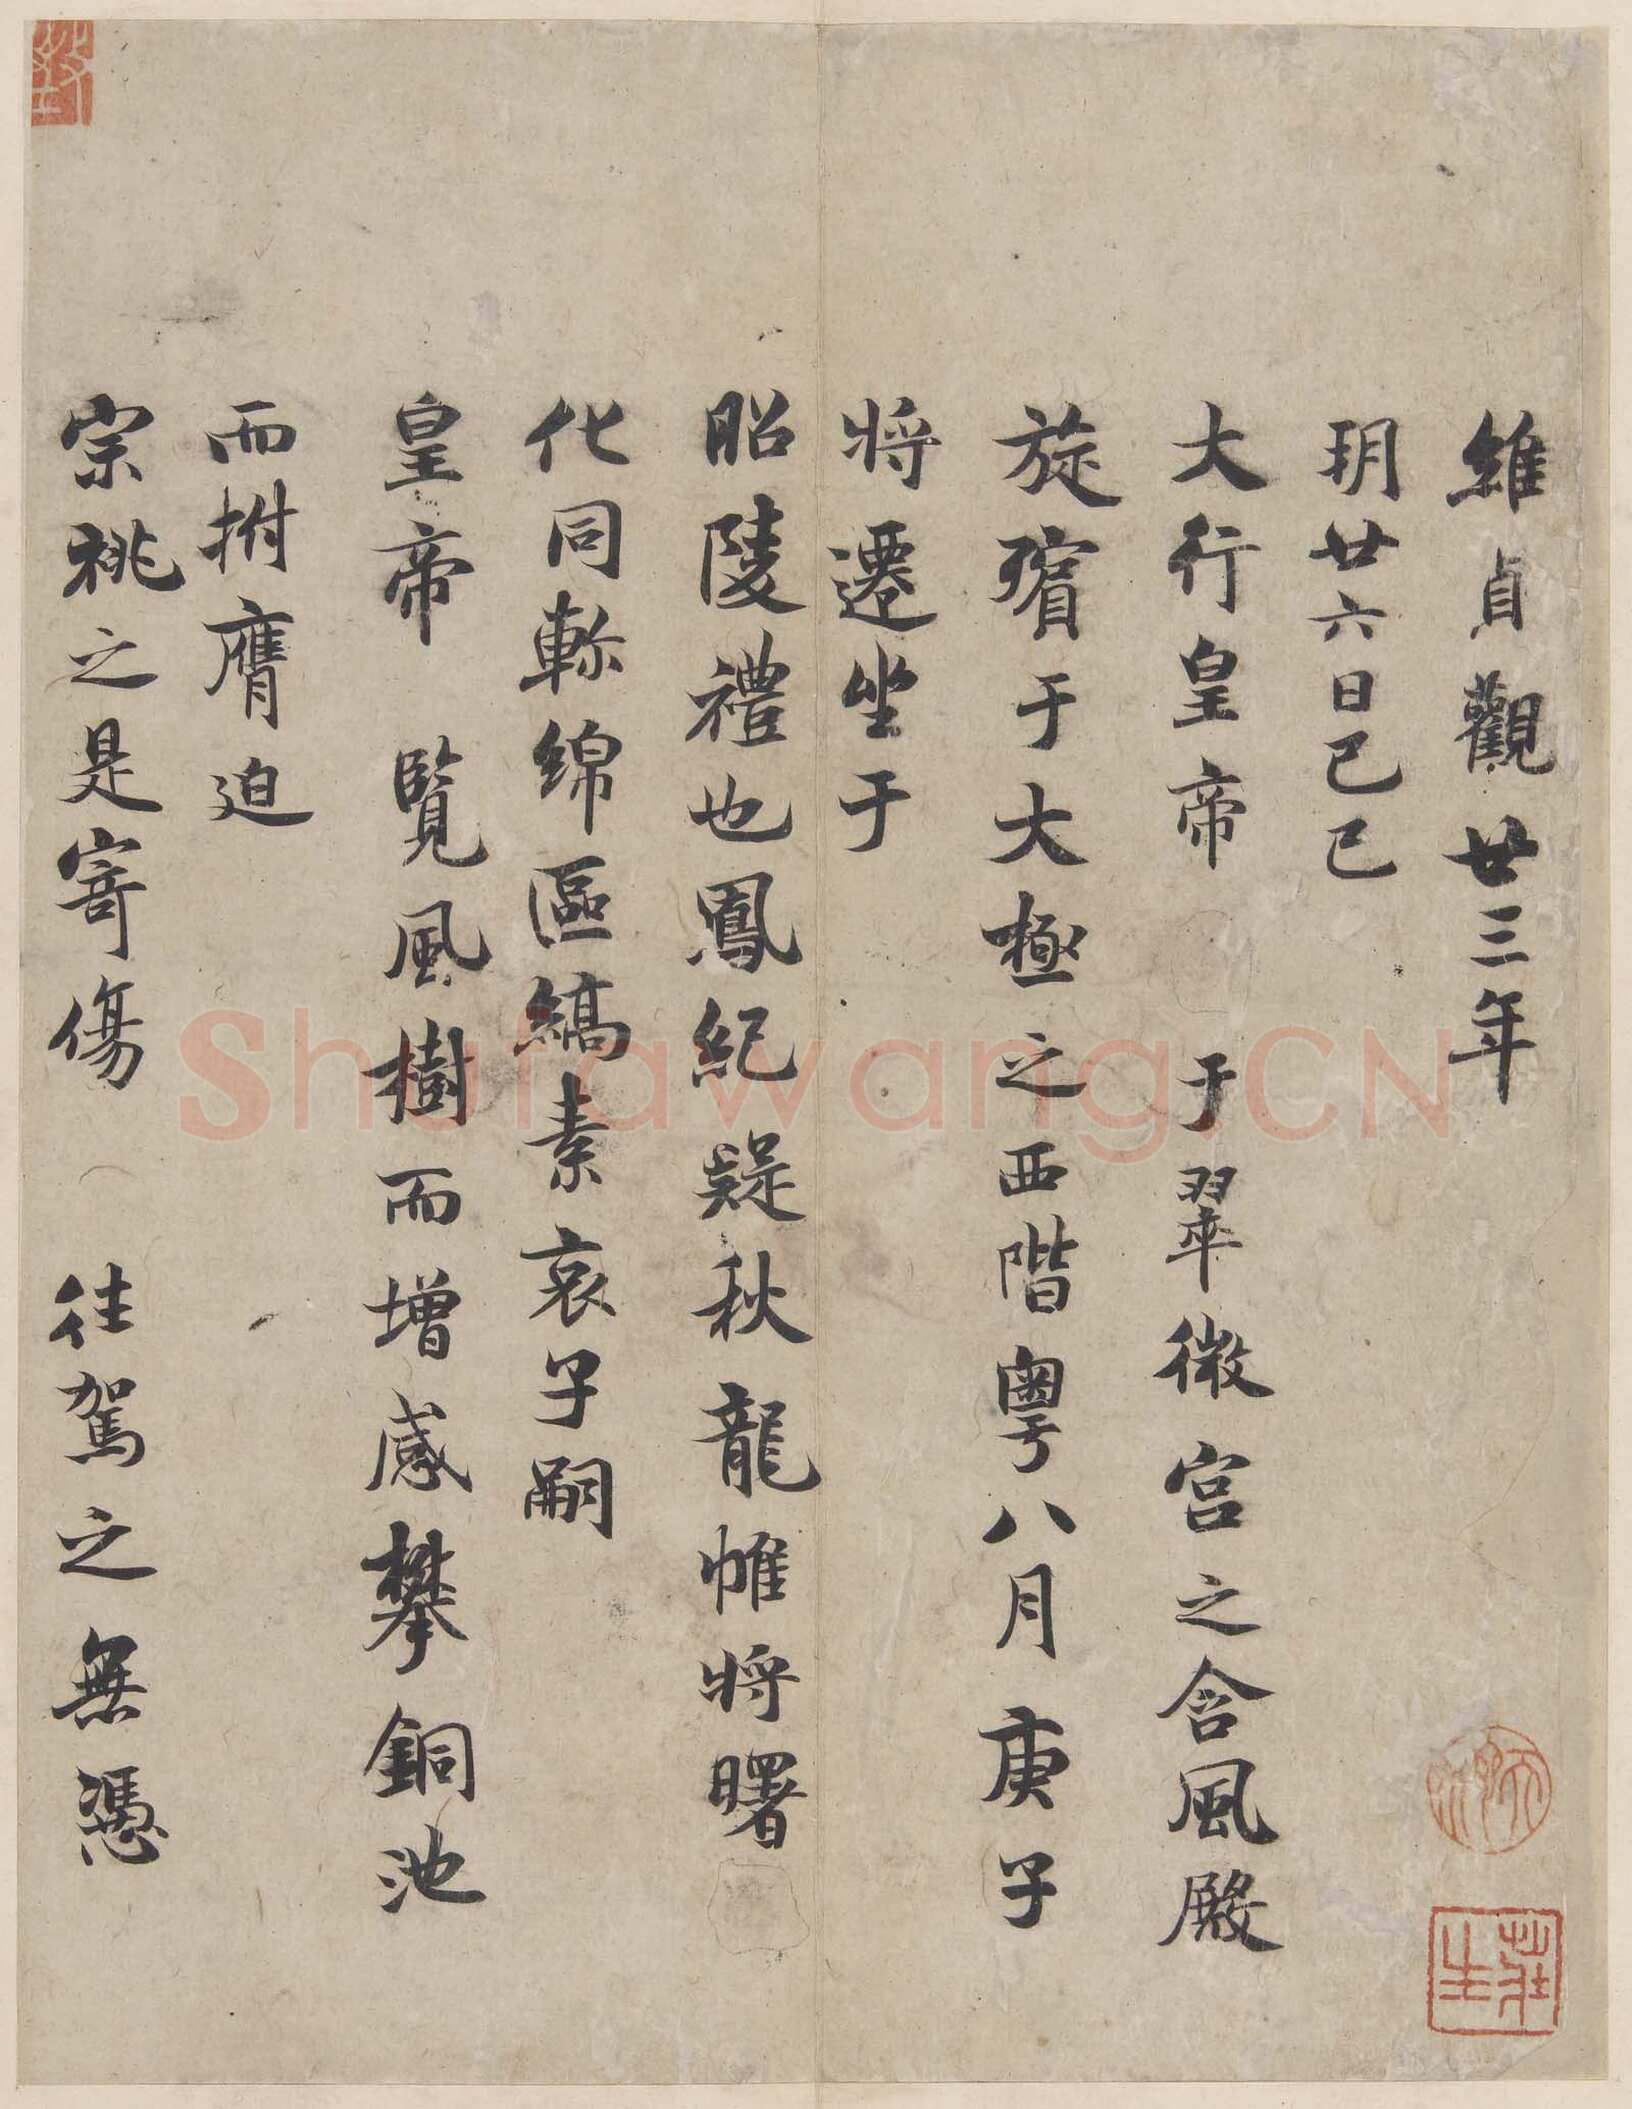 維貞觀廿三年
玥廿六日己巳
大行皇帝 于翠微宮之含風殿
旋殯于大極之西階粵八月庚子
將遷坐于
昭陵禮也鳳紀疑秋龍帷將曙
化同軫綿區縞素哀子嗣
皇帝 覽風樹而增感攀銅池
而拊膺迫
宗祧之是寄傷 往駕之無憑
Shufawang.CN